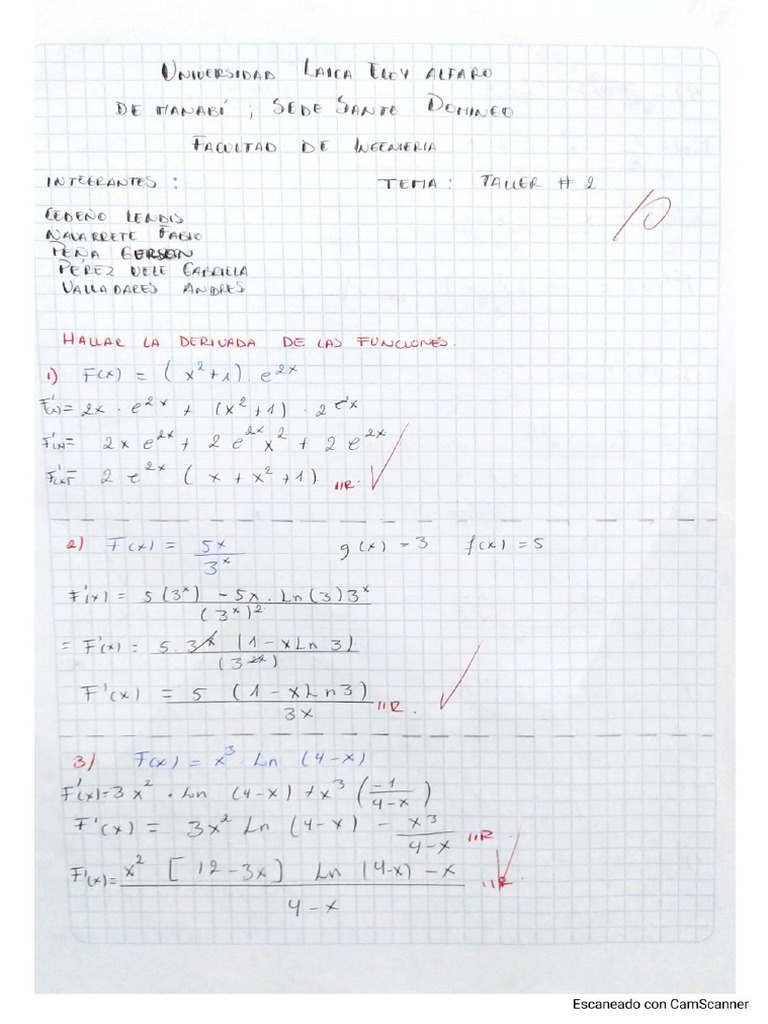 UNIVERSIDAD LAICA ELOY ALFARO
DE MANABÍ ; SEDE SANTO DOMINGO
FACULTAD DE INGENIERIA
INTEGRANTES : TEMA : TALLER # 2
10
CEDEÑO LENDIS
NAVARRETE FABIO
PEÑA GERSON
PÉREZ VELE GABRIELA
VALLADARES ANDRES
HALLAR LA DERIVADA DE LAS FUNCIONES.
1) F(x) = (x²+1) . e^2x
F'(x)= 2x · e^2x + (x²+1) · 2e^2x
F'(x)= 2x e^2x + 2 e^2x x² + 2 e^2x
F'(x)= 2 e^2x (x + x² +1) //R.
2) F(x) = 5x / 3^x g(x) = 3 f(x) = 5
F'(x) = 5(3^x) - 5x . Ln(3)3^x / (3^x)²
= F'(x) = 5.3^x (1 - x Ln 3) / (3^2x)
F'(x) = 5 (1 - x Ln 3) / 3x //R.
3) F(x) = x³ Ln (4-x)
F'(x)= 3x² · Ln (4-x) + x³ (-1 / 4-x)
F'(x) = 3x² Ln (4-x) - x³ / 4-x //R.
F'(x)= x² [12-3x] Ln (4-x) - x / 4-x //R.
Escaneado con CamScanner